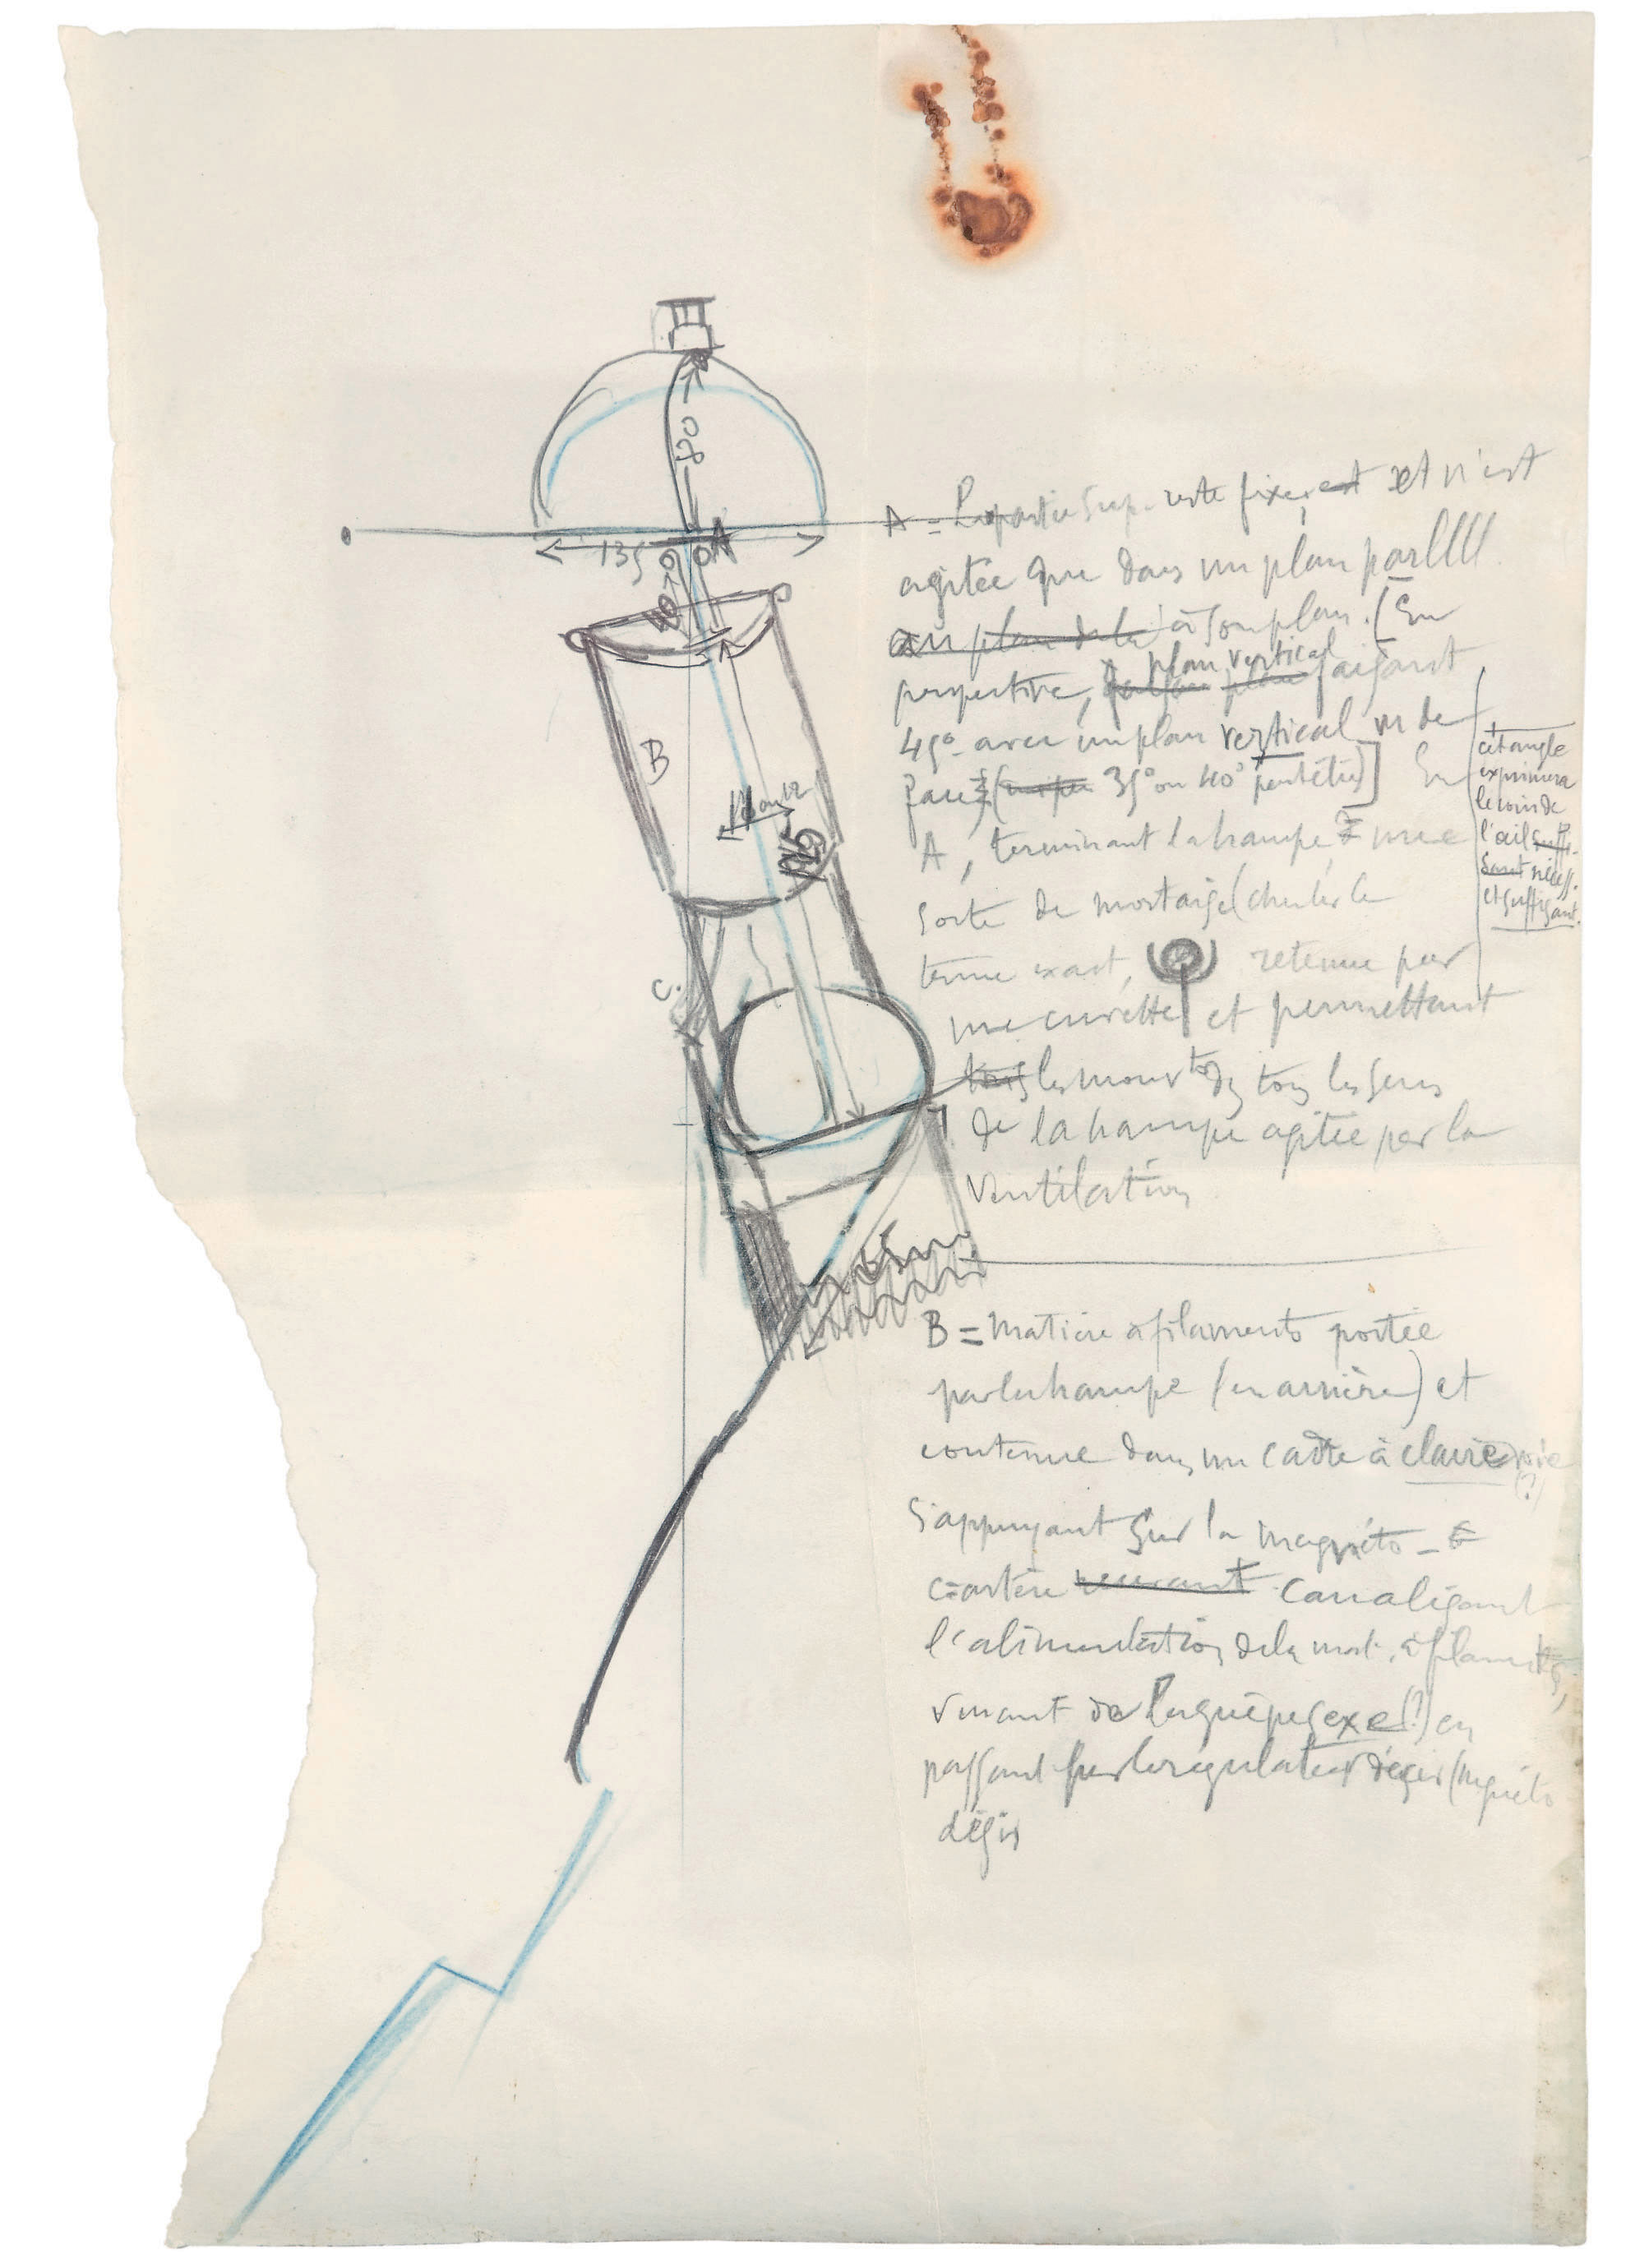 80
A
135
40
B
10 ou 12
C.
65
A = La partie Sup. reste fixe, est et n'est
agitée que dans un plan parllll
au plan de la à son plan. (En
plan vertical
perspective, plan faisant
45° avec un plan vertical vu de
face (35° ou 40° peut être)] En
A, terminant la hampe, une
sorte de mortaise (chercher le
terme exact, retenue par
une cuvette et permettant
tous les mouvts ds tous les sens
de la hampe agitée par la
Ventilation
+
cet angle
exprimera
le coin de
l'œil suffi-
sant nécess.
et suffisant.
B = Matière à filaments portée
par la hampe (en arrière) et
contenue dans un cadre à claire voie
(?)
S'appuyant Sur la magnéto -
C = artère canalisant
l'alimentation de la mat. à filaments,
venant de La guêpe sexe (?) en
passant par le régulateur désir (magnéto
désir